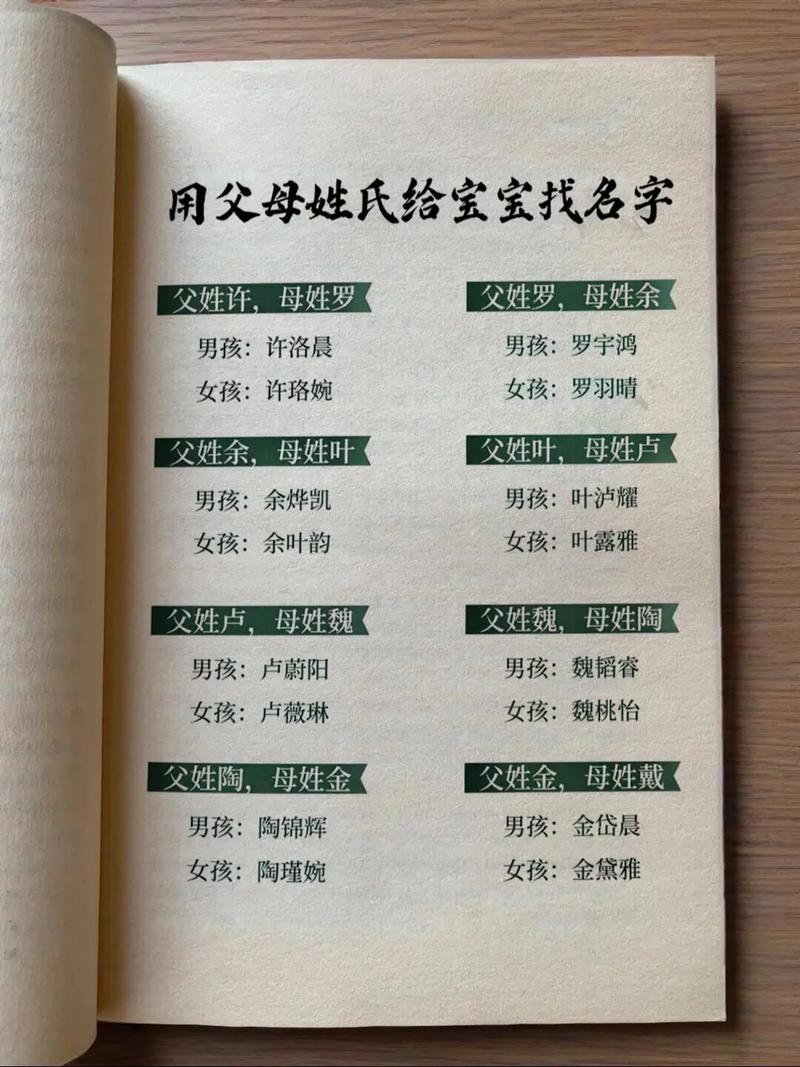 用父母姓氏给宝宝找名字
父姓许，母姓罗
男孩：许洛晨
女孩：许珞婉
父姓罗，母姓余
男孩：罗宇鸿
女孩：罗羽晴
父姓余，母姓叶
男孩：余烨凯
女孩：余叶韵
父姓叶，母姓卢
男孩：叶泸耀
女孩：叶露雅
父姓卢，母姓魏
男孩：卢蔚阳
女孩：卢薇琳
父姓魏，母姓陶
男孩：魏韬睿
女孩：魏桃怡
父姓陶，母姓金
男孩：陶锦辉
女孩：陶瑾婉
父姓金，母姓戴
男孩：金岱晨
女孩：金黛雅